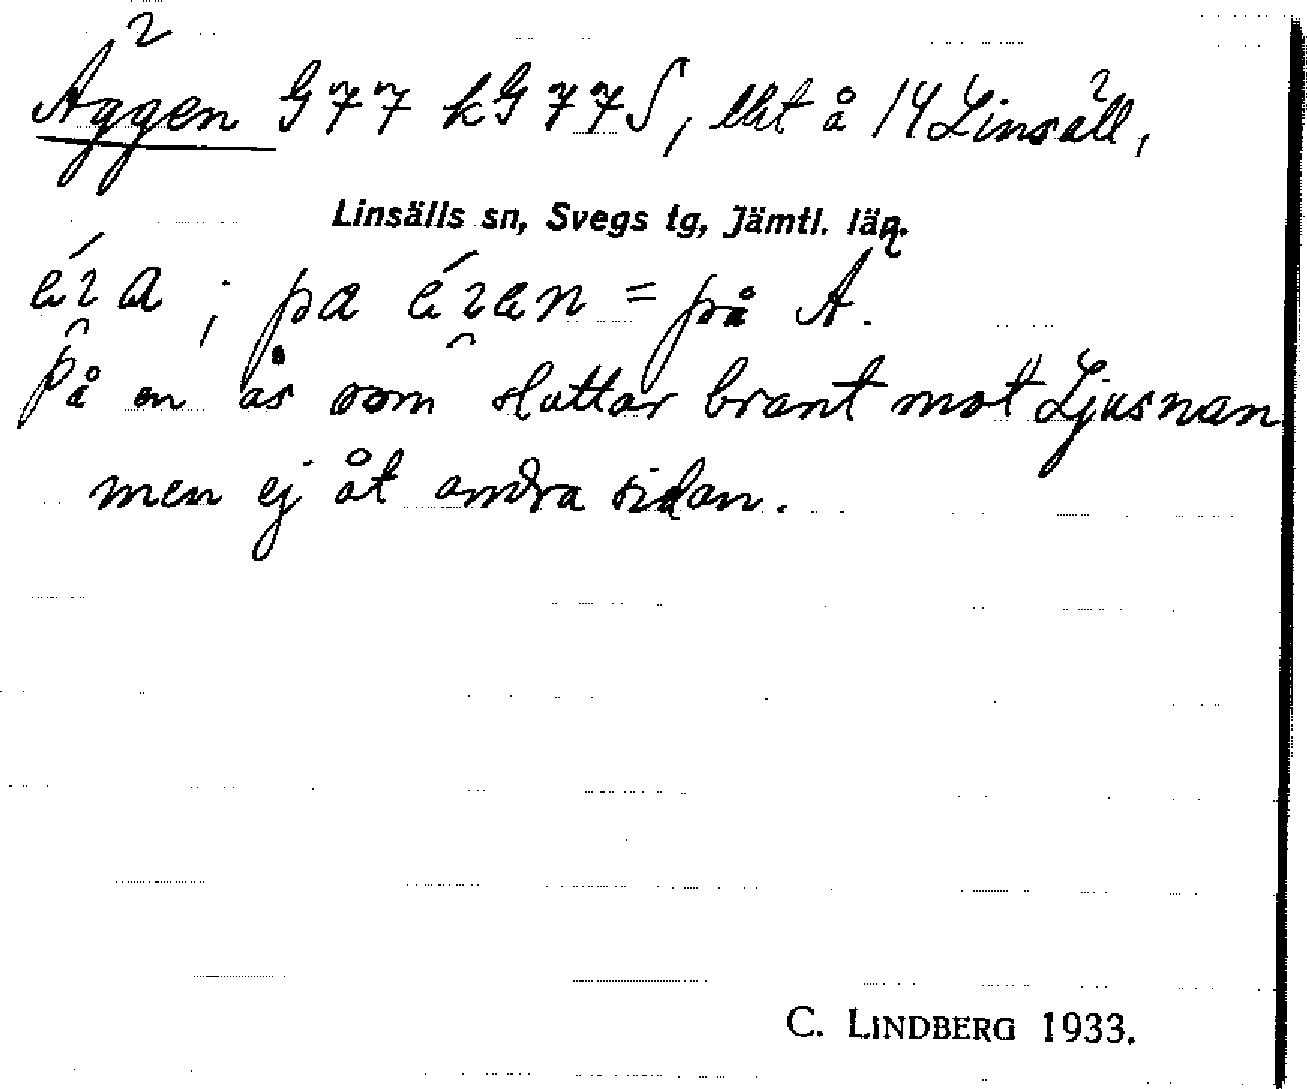 Äggen G77 kG77S, lht å 14 Linsäll,
Linsälls sn, Svegs tg, Jämtl. län.
; på = på Ä.
på en ås som sluttar brant mot Ljusnan
men ej åt andra sidan.
C. LINDBERG 1933.